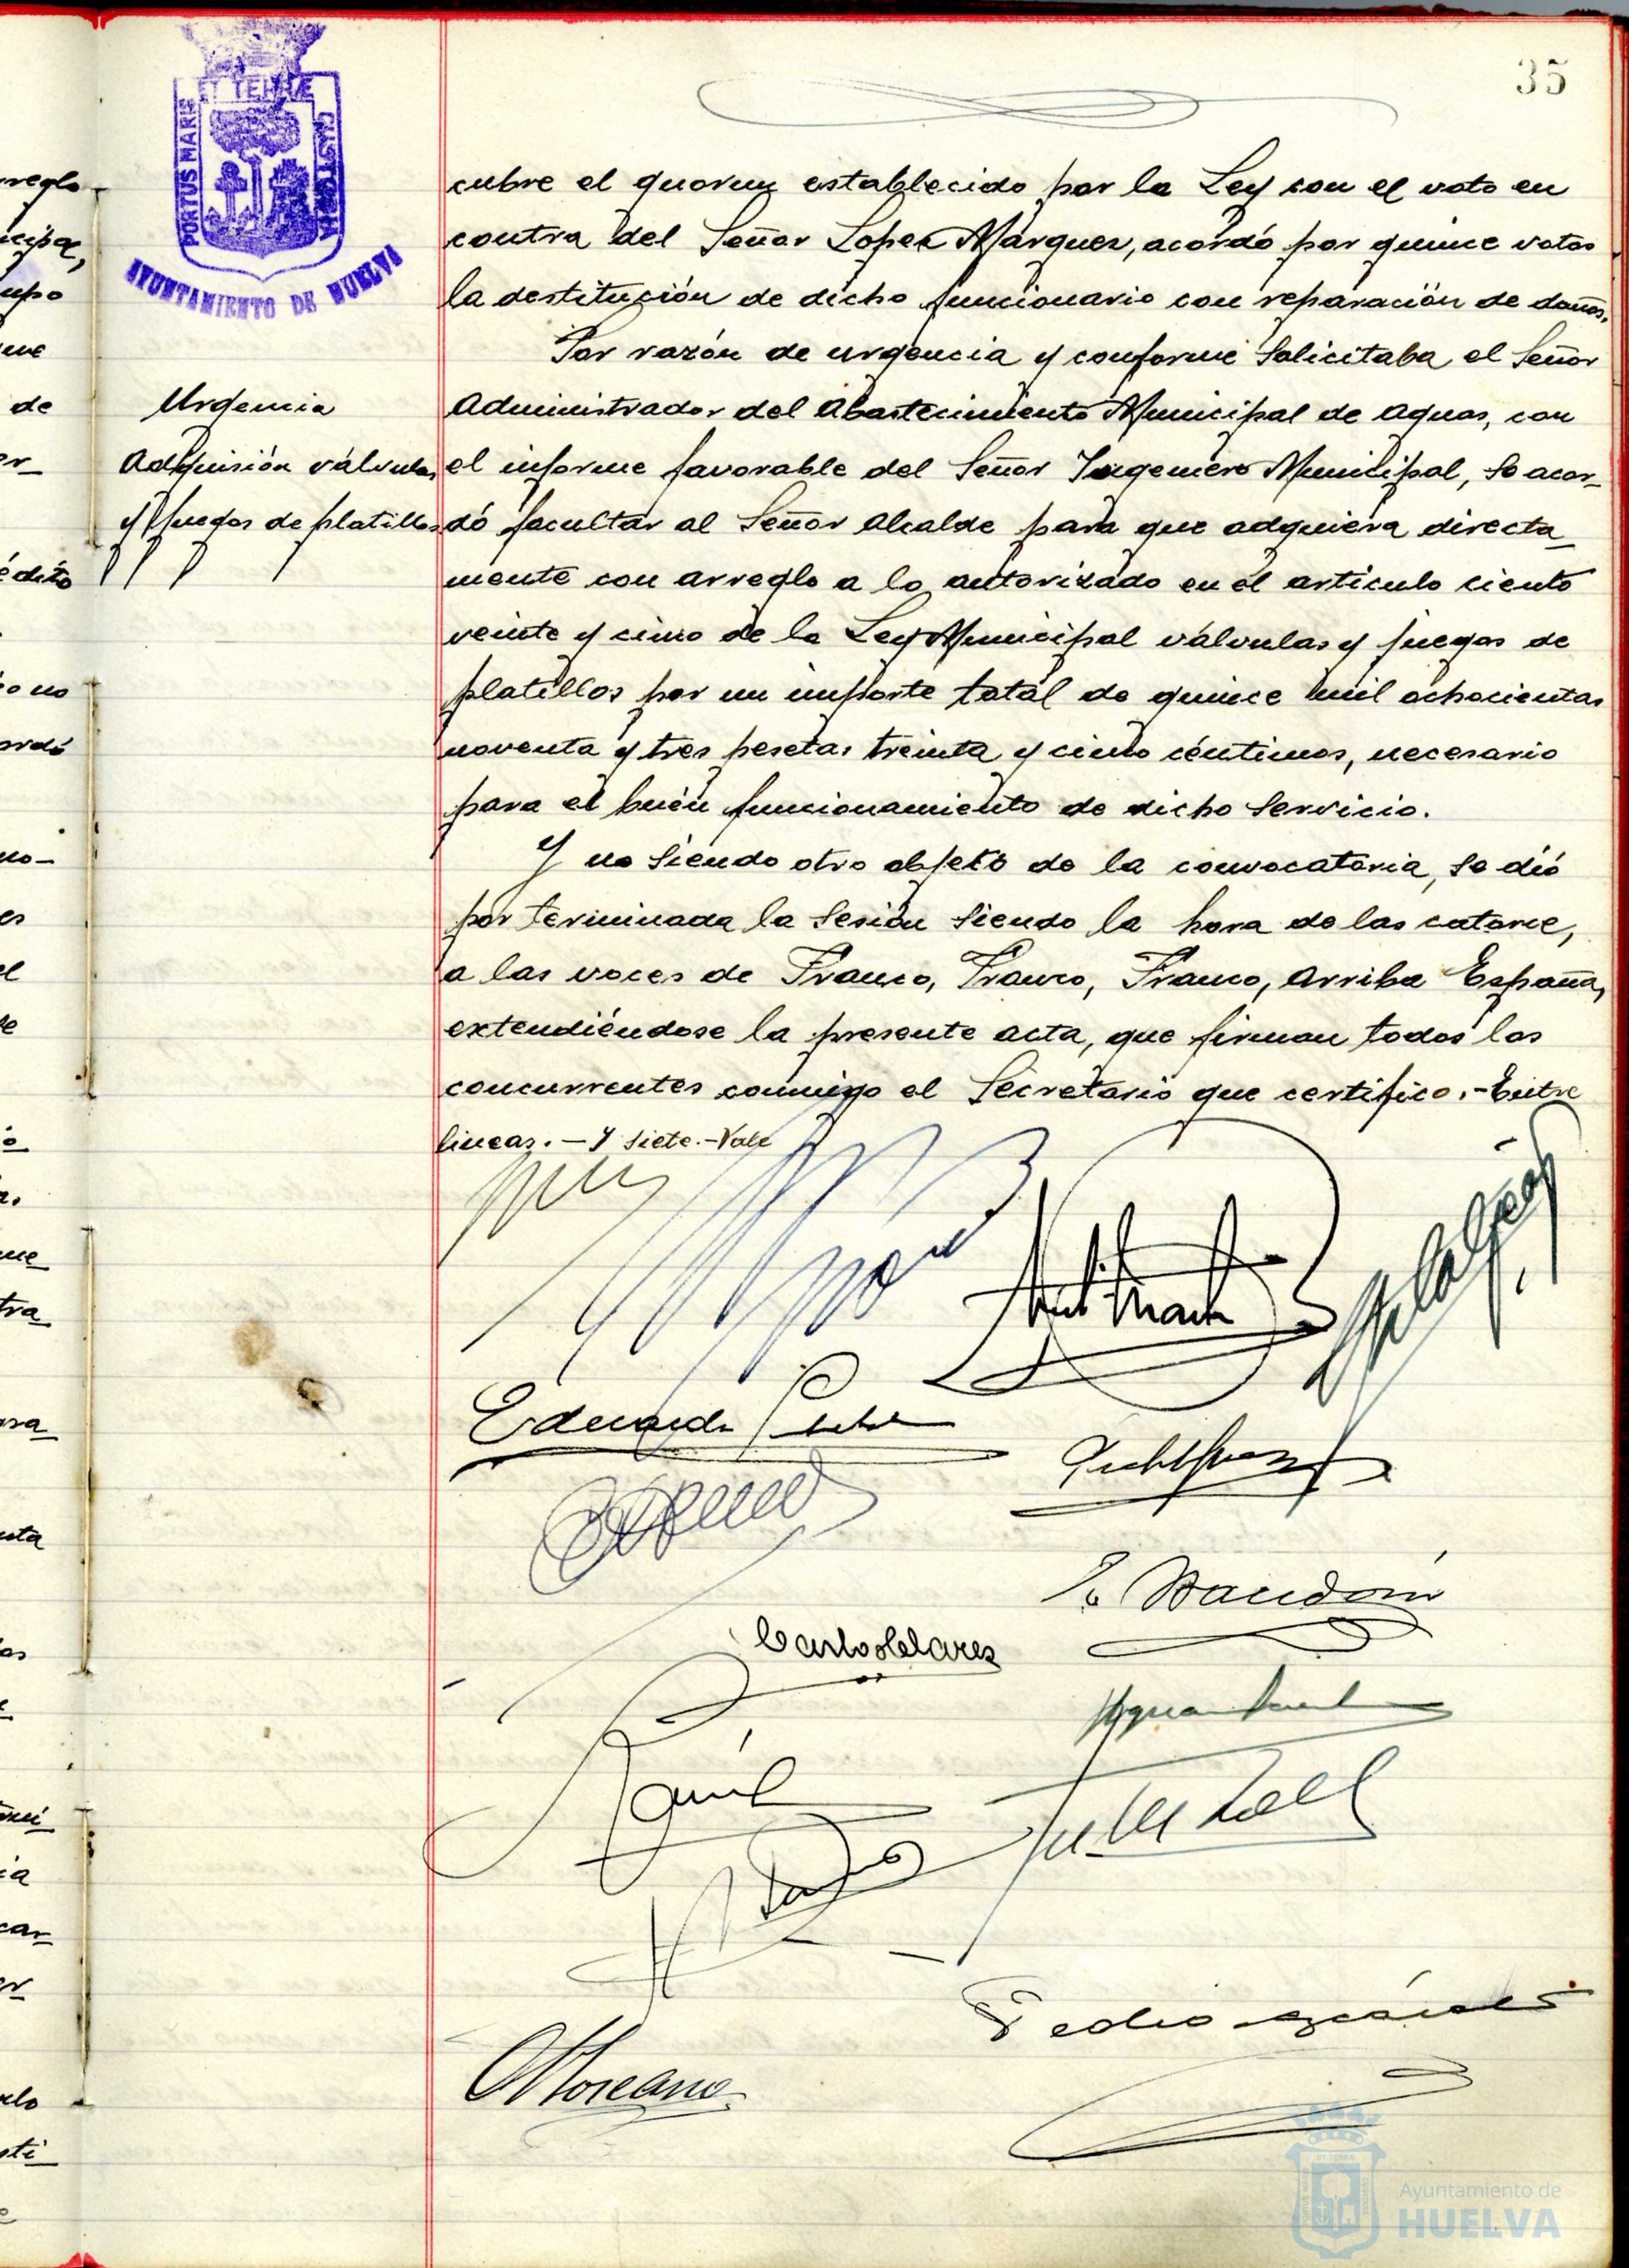 35
PORTUS MARIS
ET TERRE
CUSTODIA
AYUNTAMIENTO DE HUELVA
cubre el quorum establecido por la Ley con el voto en
contra del Señor Lopez Marquez, acordó por quince votos
la destitución de dicho funcionario con reparación de daños.
Por razón de urgencia y conforme solicitaba el Señor
Urgencia
Administrador del Abastecimiento Municipal de aguas, con
Adquisión válvulas
el informe favorable del Señor Ingeniero Municipal, se acor-
y juegos de platillos
dó facultar al Señor Alcalde para que adquiera directa-
mente con arreglo a lo autorizado en el artículo ciento
veinte y cinco de la Ley Municipal válvulas y juegos de
platillos por un importe total de quince mil ochocientas
noventa y tres pesetas treinta y cinco céntimos, necesario
para el buen funcionamiento de dicho servicio.
Y no siendo otro objeto de la convocatoria, se dió
por terminada la sesión siendo la hora de las catorce,
a las voces de Franco, Franco, Franco, Arriba España,
extendiéndose la presente acta, que firman todos los
concurrentes conmigo el Secretario que certifico.-Entre
lineas.-Y siete.-Vale
Eduardo
Pedro
Ayuntamiento de
HUELVA